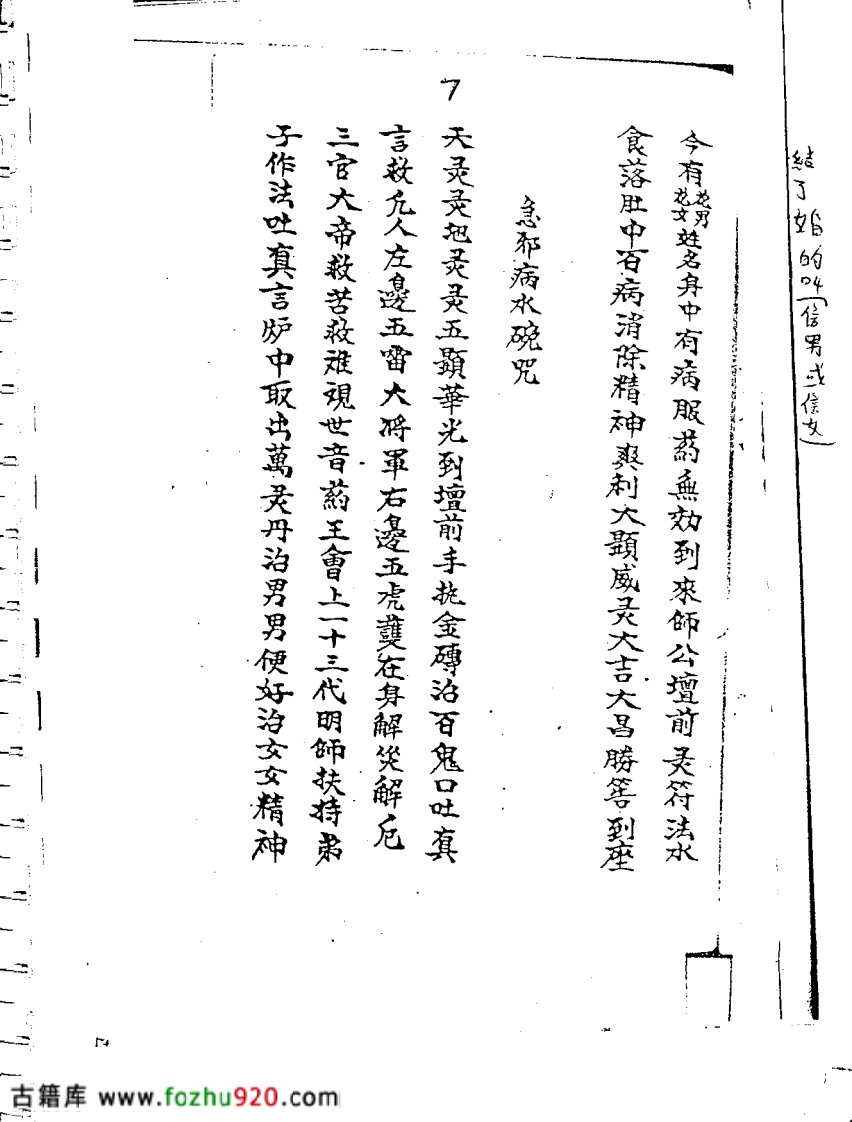 結了婚的叫(信男或信女)
今有花男花女姓名身中有病服葯無効到來師公壇前灵符法水
食落肚中百病消除精神爽利大顕威灵大吉大昌勝筶到座
急邪病水碗咒
7
天灵灵地灵灵五顕華光到壇前手执金磚治百鬼口吐真
言救凡人左邊五雷大将軍右邊五虎護在身解災解厄
三官大帝救苦救难視世音葯王會上一十三代明師扶持弟
子作法吐真言炉中取出萬灵丹治男男便好治女女精神
古籍库 www.fozhu920.com